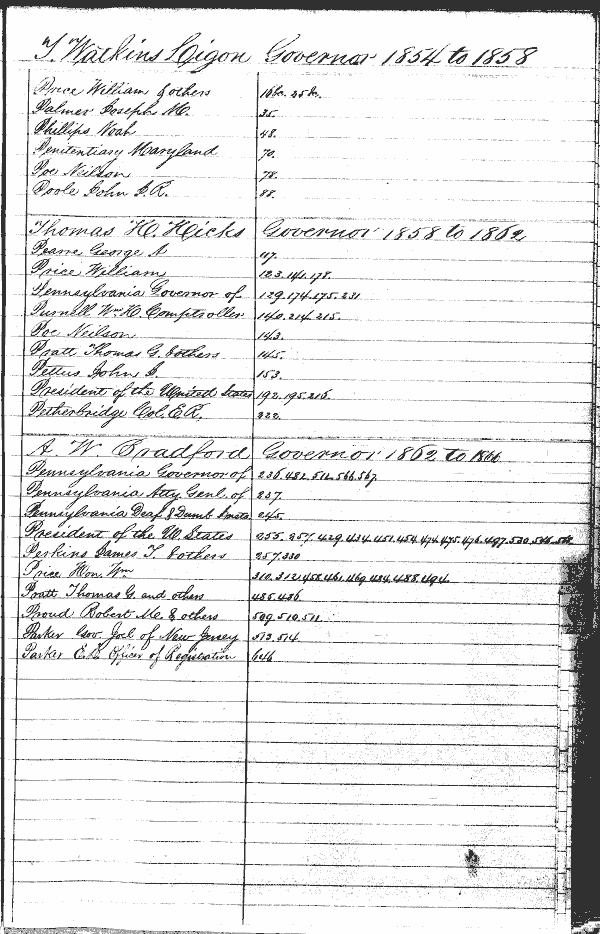 T. Watkins Ligon Governor 1854 to 1858
Price William & others
Palmer Joseph M. 35.
Phillips Noah 48.
Penitentiary Maryland 70.
Poe Neilson 78.
Poole John J. R. 88.
Thomas H. Hicks Governor 1858 to 1862
Pearre George A 117.
Price William 123.141.178.
Pennsylvania Governor of 129.174.175.231
Purnell Wm. H. Comptroller 140.214.215.
Poe Neilson 143.
Pratt Thomas G. & others 145.
Pettus John J. 153.
President of the United States 192.195.216.
Petherbridge Col. E. R. 222.
A. W. Bradford Governor 1862 to 1866
Pennsylvania Governor of 236.482.512.566.567.
Pennsylvania Atty. Genl. of 237.
Pennsylvania Deaf & Dumb 245.
President of the U. States 255.257.429.434.451.454.474.475.476.497.530.
Perkins James T. & others 257.330
Price Hon. Wm 310.312.458.461.469.484.488.494.
Pratt Thomas G. and others 485.486.
Proud Robert M. & others 509.510.511.
Parker Gov. Joel of New Jersey 513.514.
Parker E. Officer of Registration 646